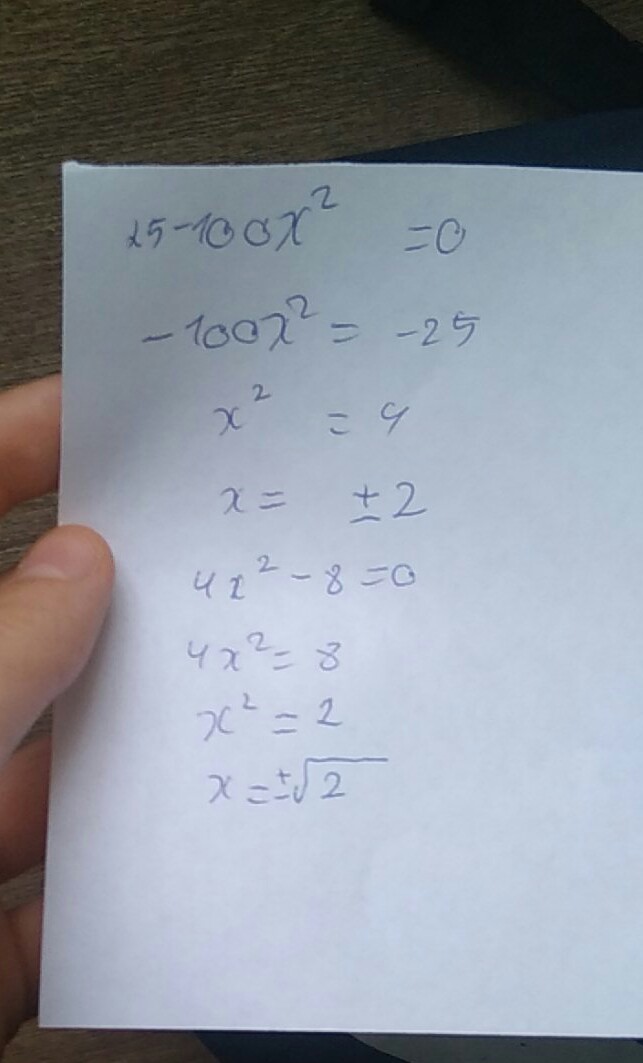 25-100x² =0
-100x² = -25
x² = 4
x = ±2
4x² - 8 = 0
4x² = 8
x² = 2
x = ±√2